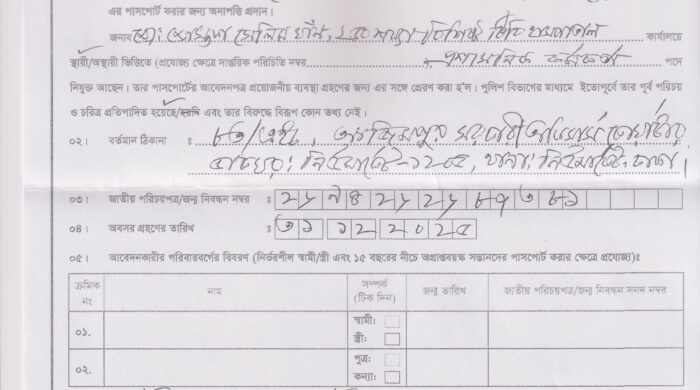 এর পাসপোর্ট করার জন্য অনাপত্তি প্রদান।
জনাব মো: সেলিম ২৫০ শয্যা বিশিষ্ট টিবি হাসপাতাল কার্যালয়ে
স্থায়ী/অস্থায়ী ভিত্তিতে (প্রযোজ্য ক্ষেত্রে দাপ্তরিক পরিচিতি নম্বর প্রশাসনিক কর্মকর্তা পদে
নিযুক্ত আছেন। তার পাসপোর্টের আবেদনপত্র প্রয়োজনীয় ব্যবস্থা গ্রহণের জন্য এর সঙ্গে প্রেরণ করা হ'ল। পুলিশ বিভাগের মাধ্যমে ইতোপূর্বে তার পূর্ব পরিচয়
ও চরিত্র প্রতিপাদিত হয়েছে/হয়নি এবং তার বিরুদ্ধে বিরূপ কোন তথ্য নেই।
০২। বর্তমান ঠিকানা : ৮৩/এইচ, আজিমপুর সরকারী অফিসার্স কোয়ার্টার
নিউমার্কেট-১২০৫, থানা: নিউমার্কেট, ঢাকা।
০৩। জাতীয় পরিচয়পত্র/জন্ম নিবন্ধন নম্বর :
০৪। অবসর গ্রহণের তারিখ : ৩১ ১২ ২০২৫
০৫। আবেদনকারীর পরিবারবর্গের বিবরণ (নির্ভরশীল স্বামী/স্ত্রী এবং ১৫ বছরের নীচে অপ্রাপ্তবয়স্ক সন্তানদের পাসপোর্ট করার ক্ষেত্রে প্রযোজ্য):
ক্রমিক নং নাম সম্পর্ক (টিক দিন) জন্ম তারিখ জাতীয় পরিচয়পত্র/জন্ম নিবন্ধন সনদ নম্বর
০১. স্বামী:
স্ত্রী:
০২. পুত্র:
কন্যা: